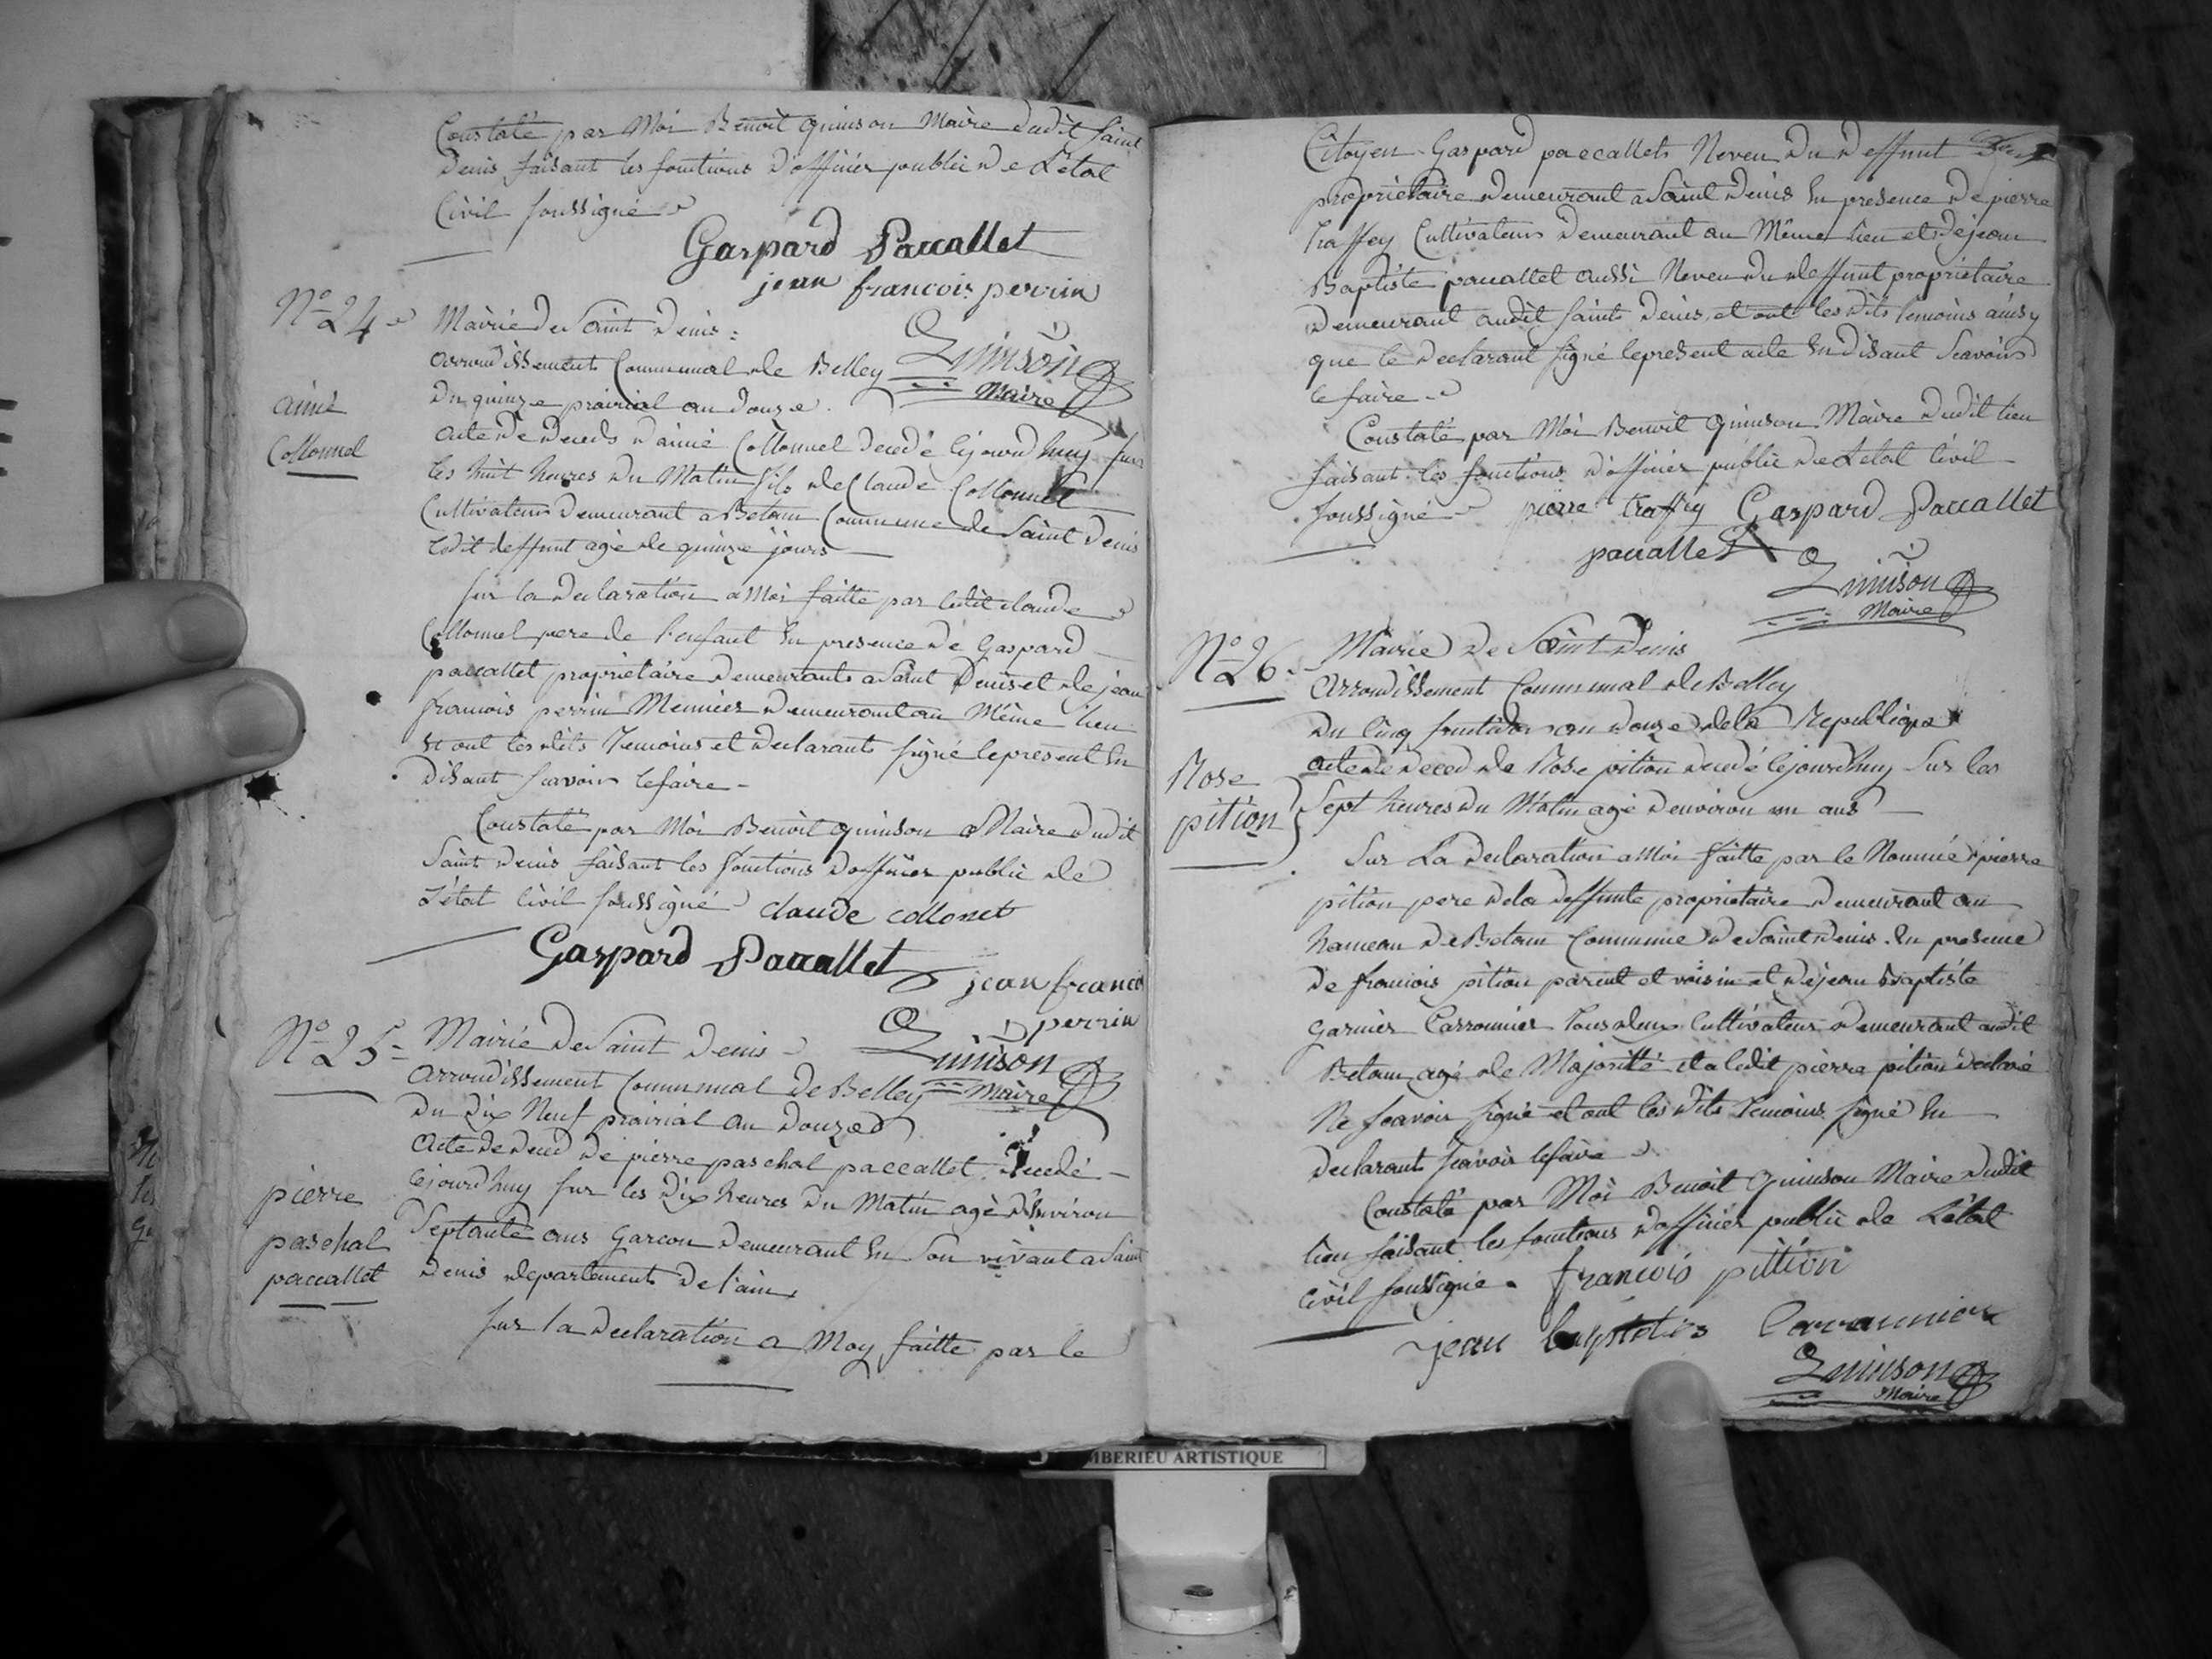 Constaté par Moi Benoit quinson Maire dudit Saint
Denis faisant les fonctions d'officier public de L'etat
Civil soussigné
Gaspard Paccallet
jean francois perrin
Quinson
Maire
N° 24
aimé
Collonnel
Mairie de Saint Denis
arrondissement Communal de Belley
Du quinze prairial an Douze
acte De Deceds D'aimé Collonnel Decedé cejourdhuy sur
les huit heures du Matin fils de Claude Collonnel
Cultivateur Demeurant a Betam Commune de Saint Denis
ledit deffunt agé de quinze jours
sur la Declaration a Moi faitte par ledit claude
Collonnel pere de l'enfant En presence de Gaspard
paccallet proprietaire Demeurants a Saint Denis et de jean
francois perrin Meunier Demeurant au Même lieu
Et ont les dits Temoins et Declarants signé le present En
Disant scavoir le faire
Constaté par Moi Benoit quinson Maire Dudit
Saint Denis faisant les fonctions D'officier public de
L'état Civil soussigné claude collonet
Gaspard Paccallet
jean francois
perrin
Quinson
Maire
N° 25
pierre
paschal
paccallet
Mairie De Saint Denis
Arrondissement Communal de Belley
Du Dix Neuf prairial an Douze
Acte De Deced De pierre paschal paccallet Decedé
cejourdhuy sur les Dix heures Du Matin agé D'Environ
Septante ans Garcon Demeurant En Son vivant a Saint
Denis departements De l'ain
sur la Declaration a Moy faitte par le
Citoyen Gaspard paccallets Neveu Du Deffunt
proprietaire Demeurant a Saint Denis En presence De pierre
traffey Cultivateur Demeurant au Même lieu et De jean
Baptiste paccallet aussi Neveu du deffunt proprietaire
Demeurant audit saint Denis, et ont les dits temoins ainsy
que le declarant signé le present acte En disant Scavoir
le faire
Constaté par Moi Benoit Quinson Maire Dudit lieu
faisant les fonctions d'officier public de Letat Civil
soussigné pierre traffey Gaspard Paccallet
paccallet
Quinson
Maire
N° 26
Rose
pition
Mairie De Saint Denis
Arrondissement Communal de Belley
Du Cinq fructidor an douze de la Republique
acte De Deced de Rose pition decedé cejourdhuy Sur les
Sept heures Du Matin agé d'environ un ans
Sur La Declaration a Moi faitte par le Nommé pierre
pition pere de la deffunte proprietaire Demeurant au
hameau De Betam Commune De Saint Denis. En presence
De francois pition parent et voisin et De jean Baptiste
garnier Carronnier tous deux Cultivateur Demeurant audit
Betam agé de Majorité et a ledit pierre pition Declaré
Ne scavoir signé et ont les dits temoins signé En
Declarant scavoir le faire
Constaté par Moi Benoit Quinson Maire Dudit
lieu faisant les fonctions d'officier public de L'état
Civil soussigné. francois pittion
jean
Quinson
Maire
MBERIEU ARTISTIQUE